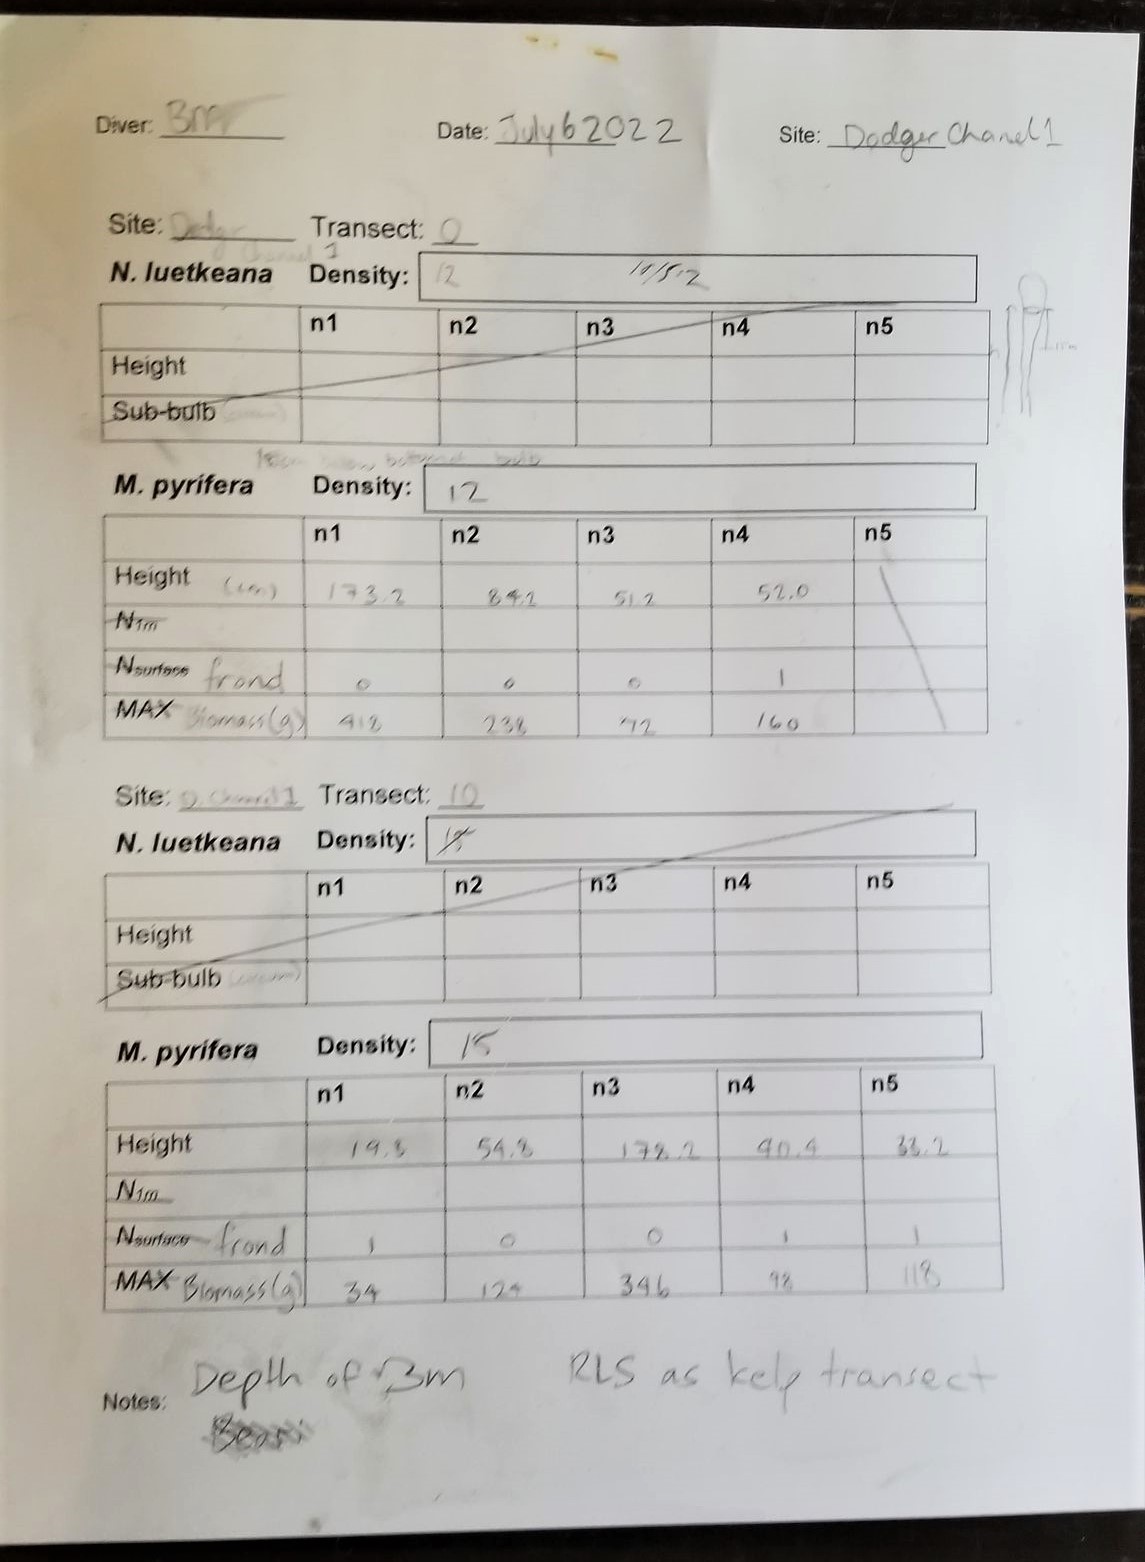 Diver: BM Date: July 6 2022 Site: Dodger Chanel 1
Site: Dodger Transect: 0
Channel 1
N. luetkeana Density: 12
n1 n2 n3 n4 n5
Height
Sub-bulb
below bottom of bulb
M. pyrifera Density: 12
n1 n2 n3 n4 n5
Height (cm) 173.2 84.2 51.2 52.0
N1m
Nsurface frond 0 0 0 1
MAX Biomass(g) 418 238 72 160
Site: D. Channel 1 Transect: 10
N. luetkeana Density: 15
n1 n2 n3 n4 n5
Height
Sub-bulb
M. pyrifera Density: 15
n1 n2 n3 n4 n5
Height 19.8 54.8 178.2 90.4 33.2
N1m
Nsurface frond 1 0 0 1 1
MAX Biomass(g) 34 124 346 98 118
Depth of 3m RLS as kelp transect
Notes: